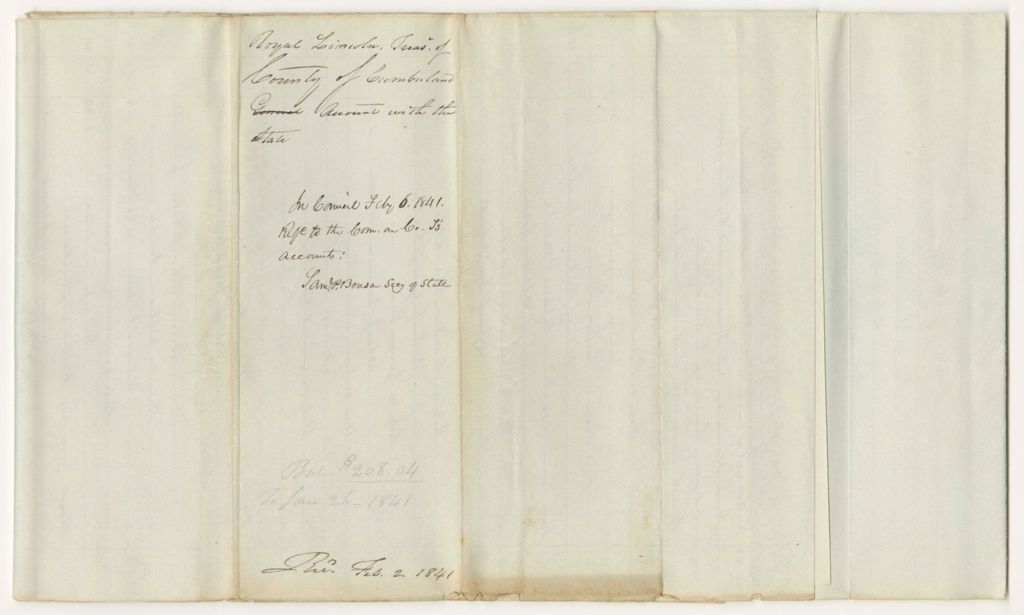 Royal Lincoln, Treasr. of
County of Cumberland
General Account with the
State
In Council Feby 6. 1841.
to the Com. on Co. Ts
accounts:
Saml. P. Benson Secy of State
Bal. $208.04
To Jan 26 - 1841
Rec. Feb. 2. 1841